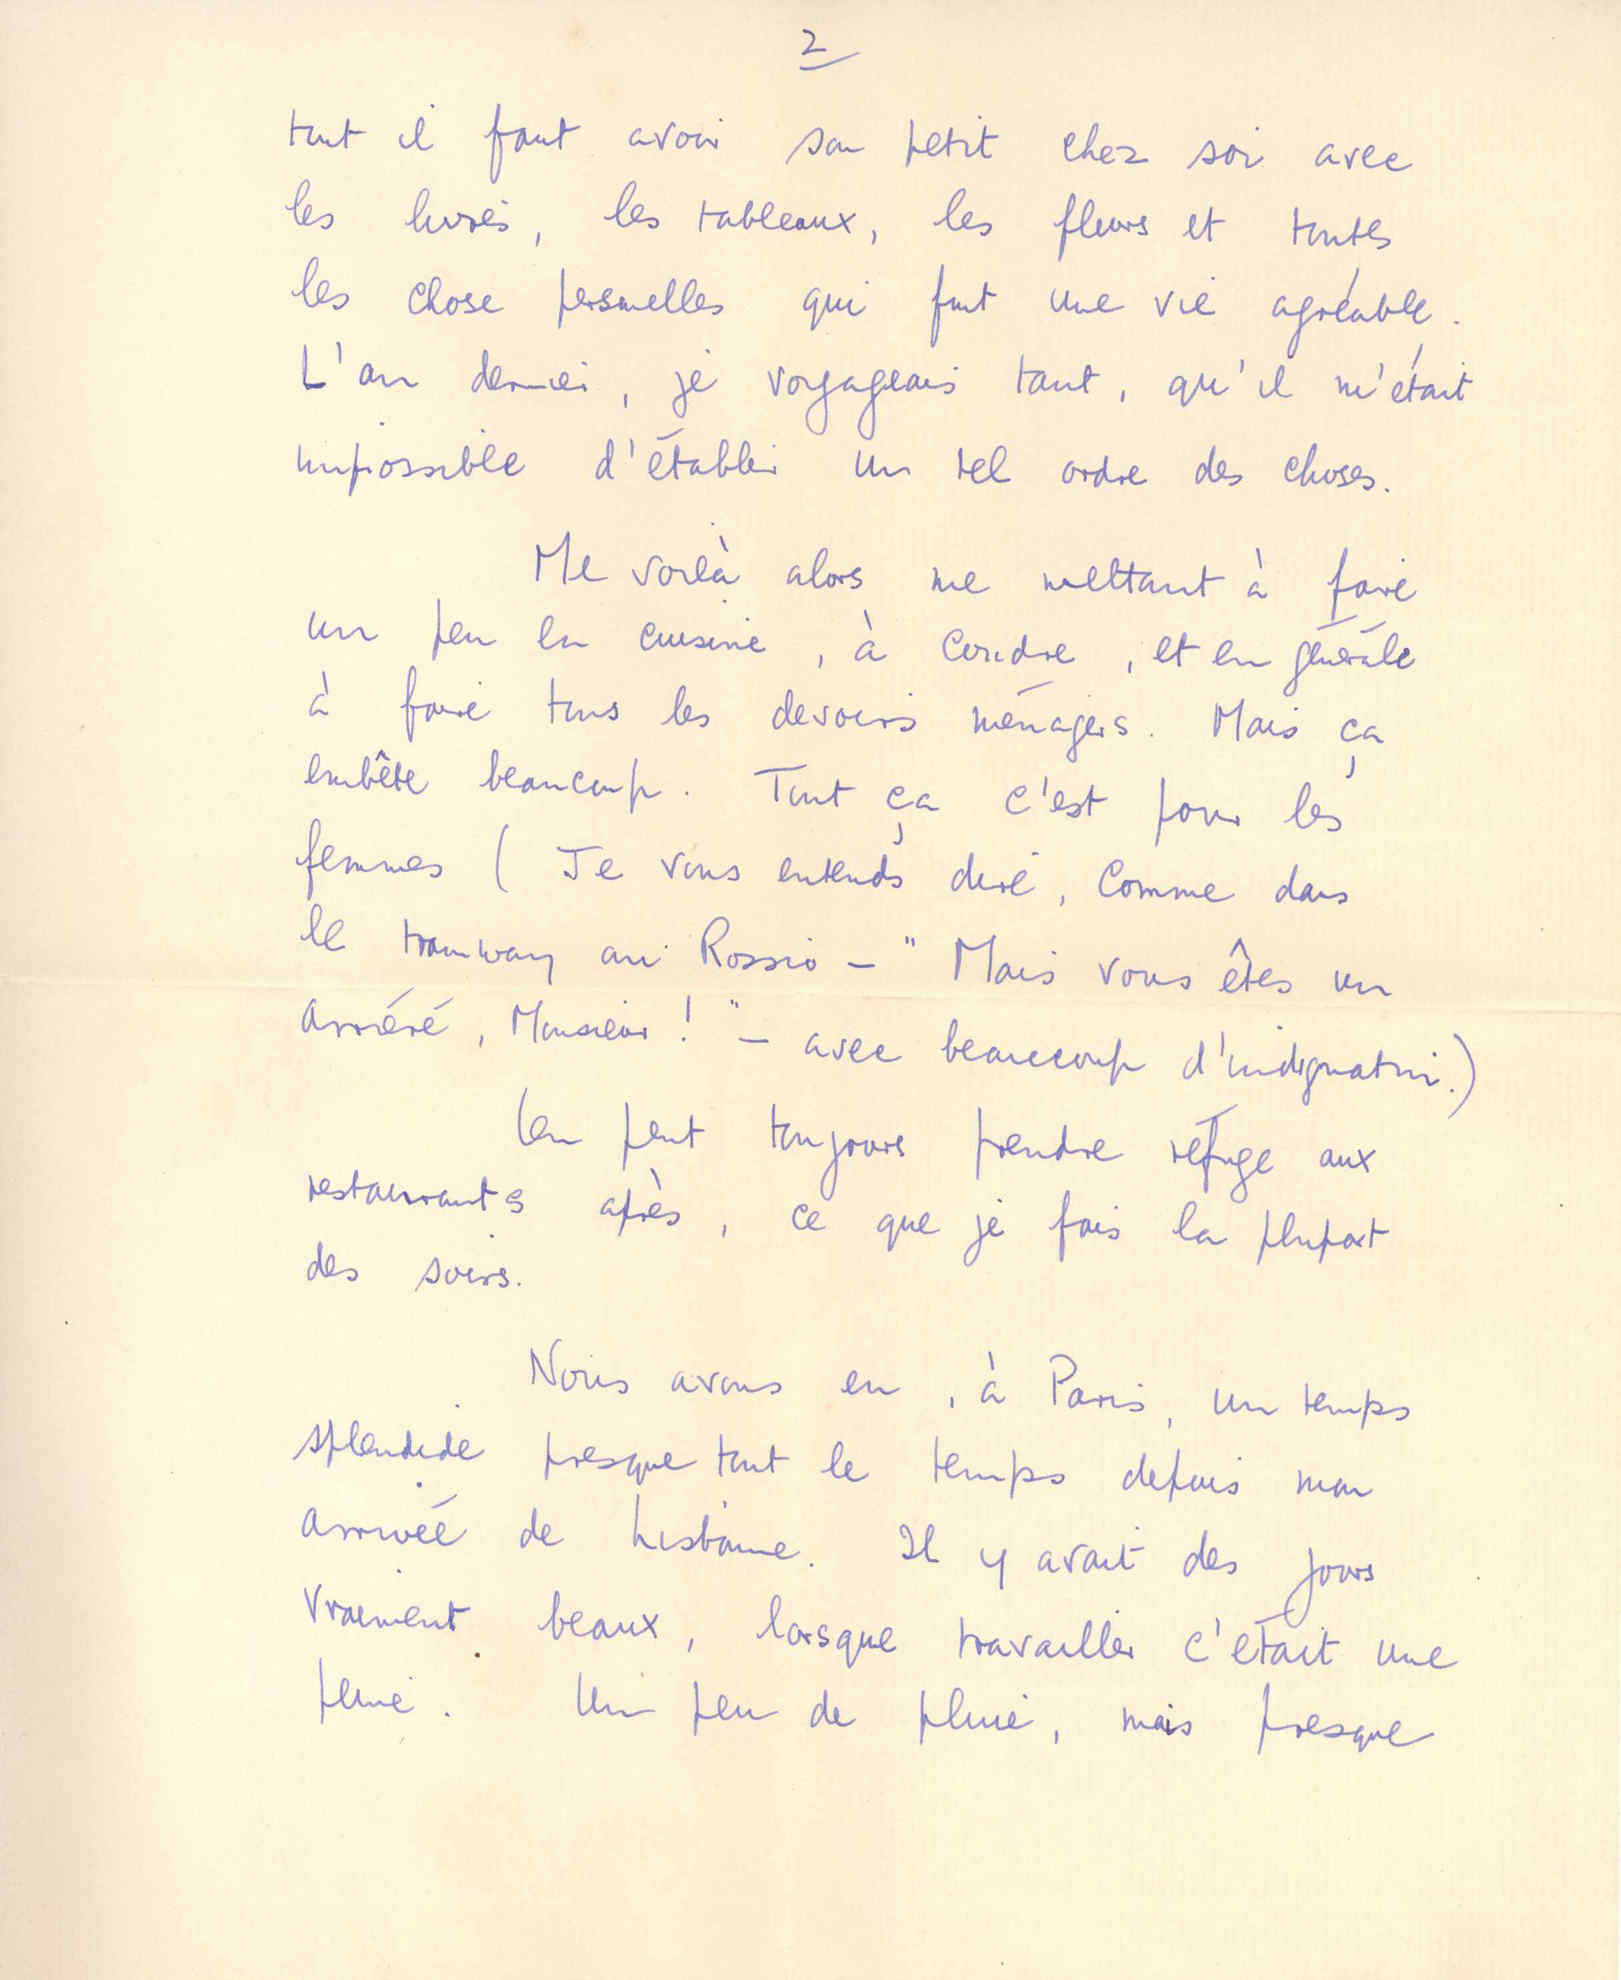 2
tout il faut avoir son petit chez soi avec
les livres, les tableaux, les fleurs et toutes
les chose personnelles qui font une vie agréable.
L'an dernier, je voyageais tant, qu'il m'était
impossible d'établir un tel ordre des choses.
Me voilà alors me mettant à faire
un peu la cuisine, à coudre, et en générale
à faire tous les devoirs ménagers. Mais ça
embête beaucoup. Tout ça c'est pour les
femmes (Je vous entends dire, comme dans
le tramway au Rossio - "Mais vous êtes un
arriéré, Monsieur!" - avec beaucoup d'indignation.)
On peut toujours prendre refuge aux
restaurants après, ce que je fais la plupart
des soirs.
Nous avons eu, à Paris, un temps
splendide presque tout le temps depuis mon
arrivée de Lisbonne. Il y avait des jours
vraiment beaux, lorsque travailler c'était une
peine. Un peu de pluie, mais presque